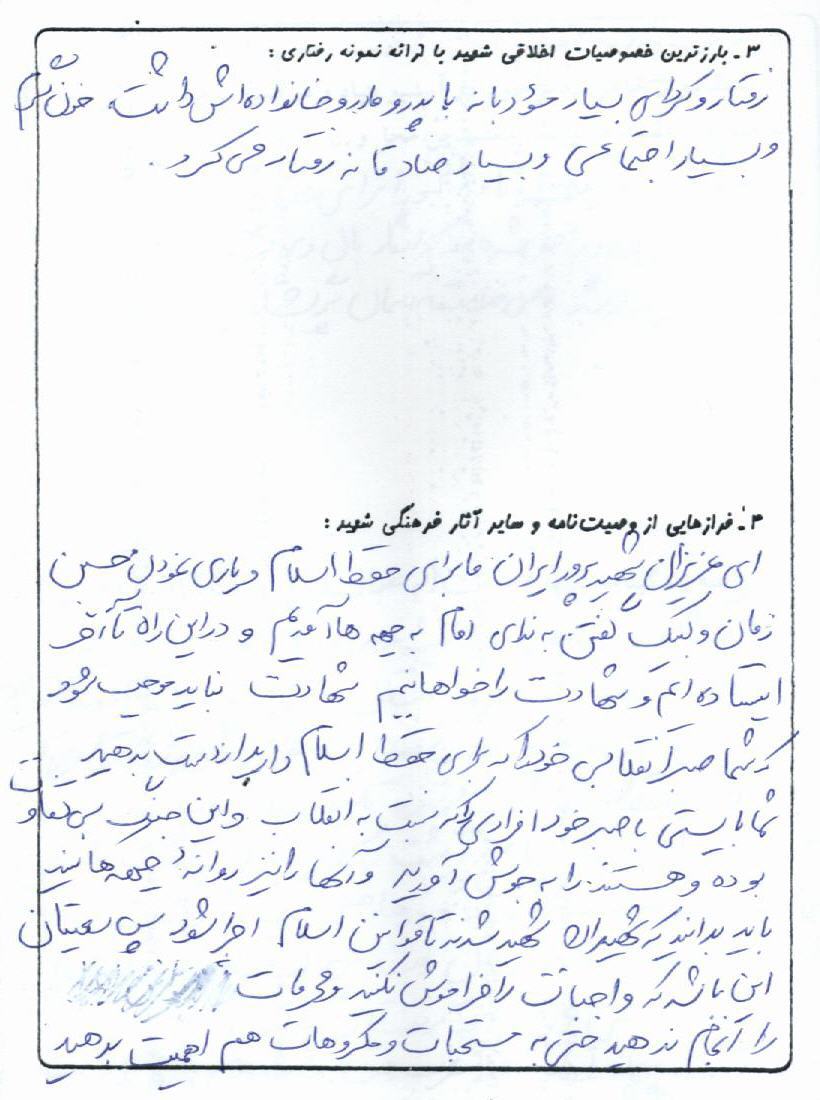 ۳ـ بارزترین خصوصیات اخلاقی شهید با ارائه نمونه رفتاری :
رفتار و کردای بسیار مؤدبانه با پدر و مادر و خانواده‌اش داشت خون گرم
و بسیار اجتماعی و بسیار صادقانه رفتار می کرد .
۴ـ فرازهایی از وصیت‌نامه و سایر آثار فرهنگی شهید :
ای عزیزان شهید پرور ایران ما برای حفظ اسلام و یاری نمودن حسین
زمان و لبیک گفتن به ندای امام به جبهه ها آمدیم و در این راه تا آخر
ایستاده ایم و شهادت را خواهانیم شهادت نباید موجب شود
که شما صبر انقلابی خود را که برای حفظ اسلام دارید از دست بدهید
شما بایستی با صبر خود افرادی را که نسبت به انقلاب و این جنگ بی تفاوت
بوده و هستند را به جوش آورید و آنها را نیز روانهٔ جبهه ها کنید
باید بدانید که شهیدان شهید شدند تا قوانین اسلام اجرا شود پس سعیتان
این باشد که واجبات را فراموش نکنید و محرمات
را انجام ندهید حتی به مستحبات و مکروهات هم اهمیت بدهید